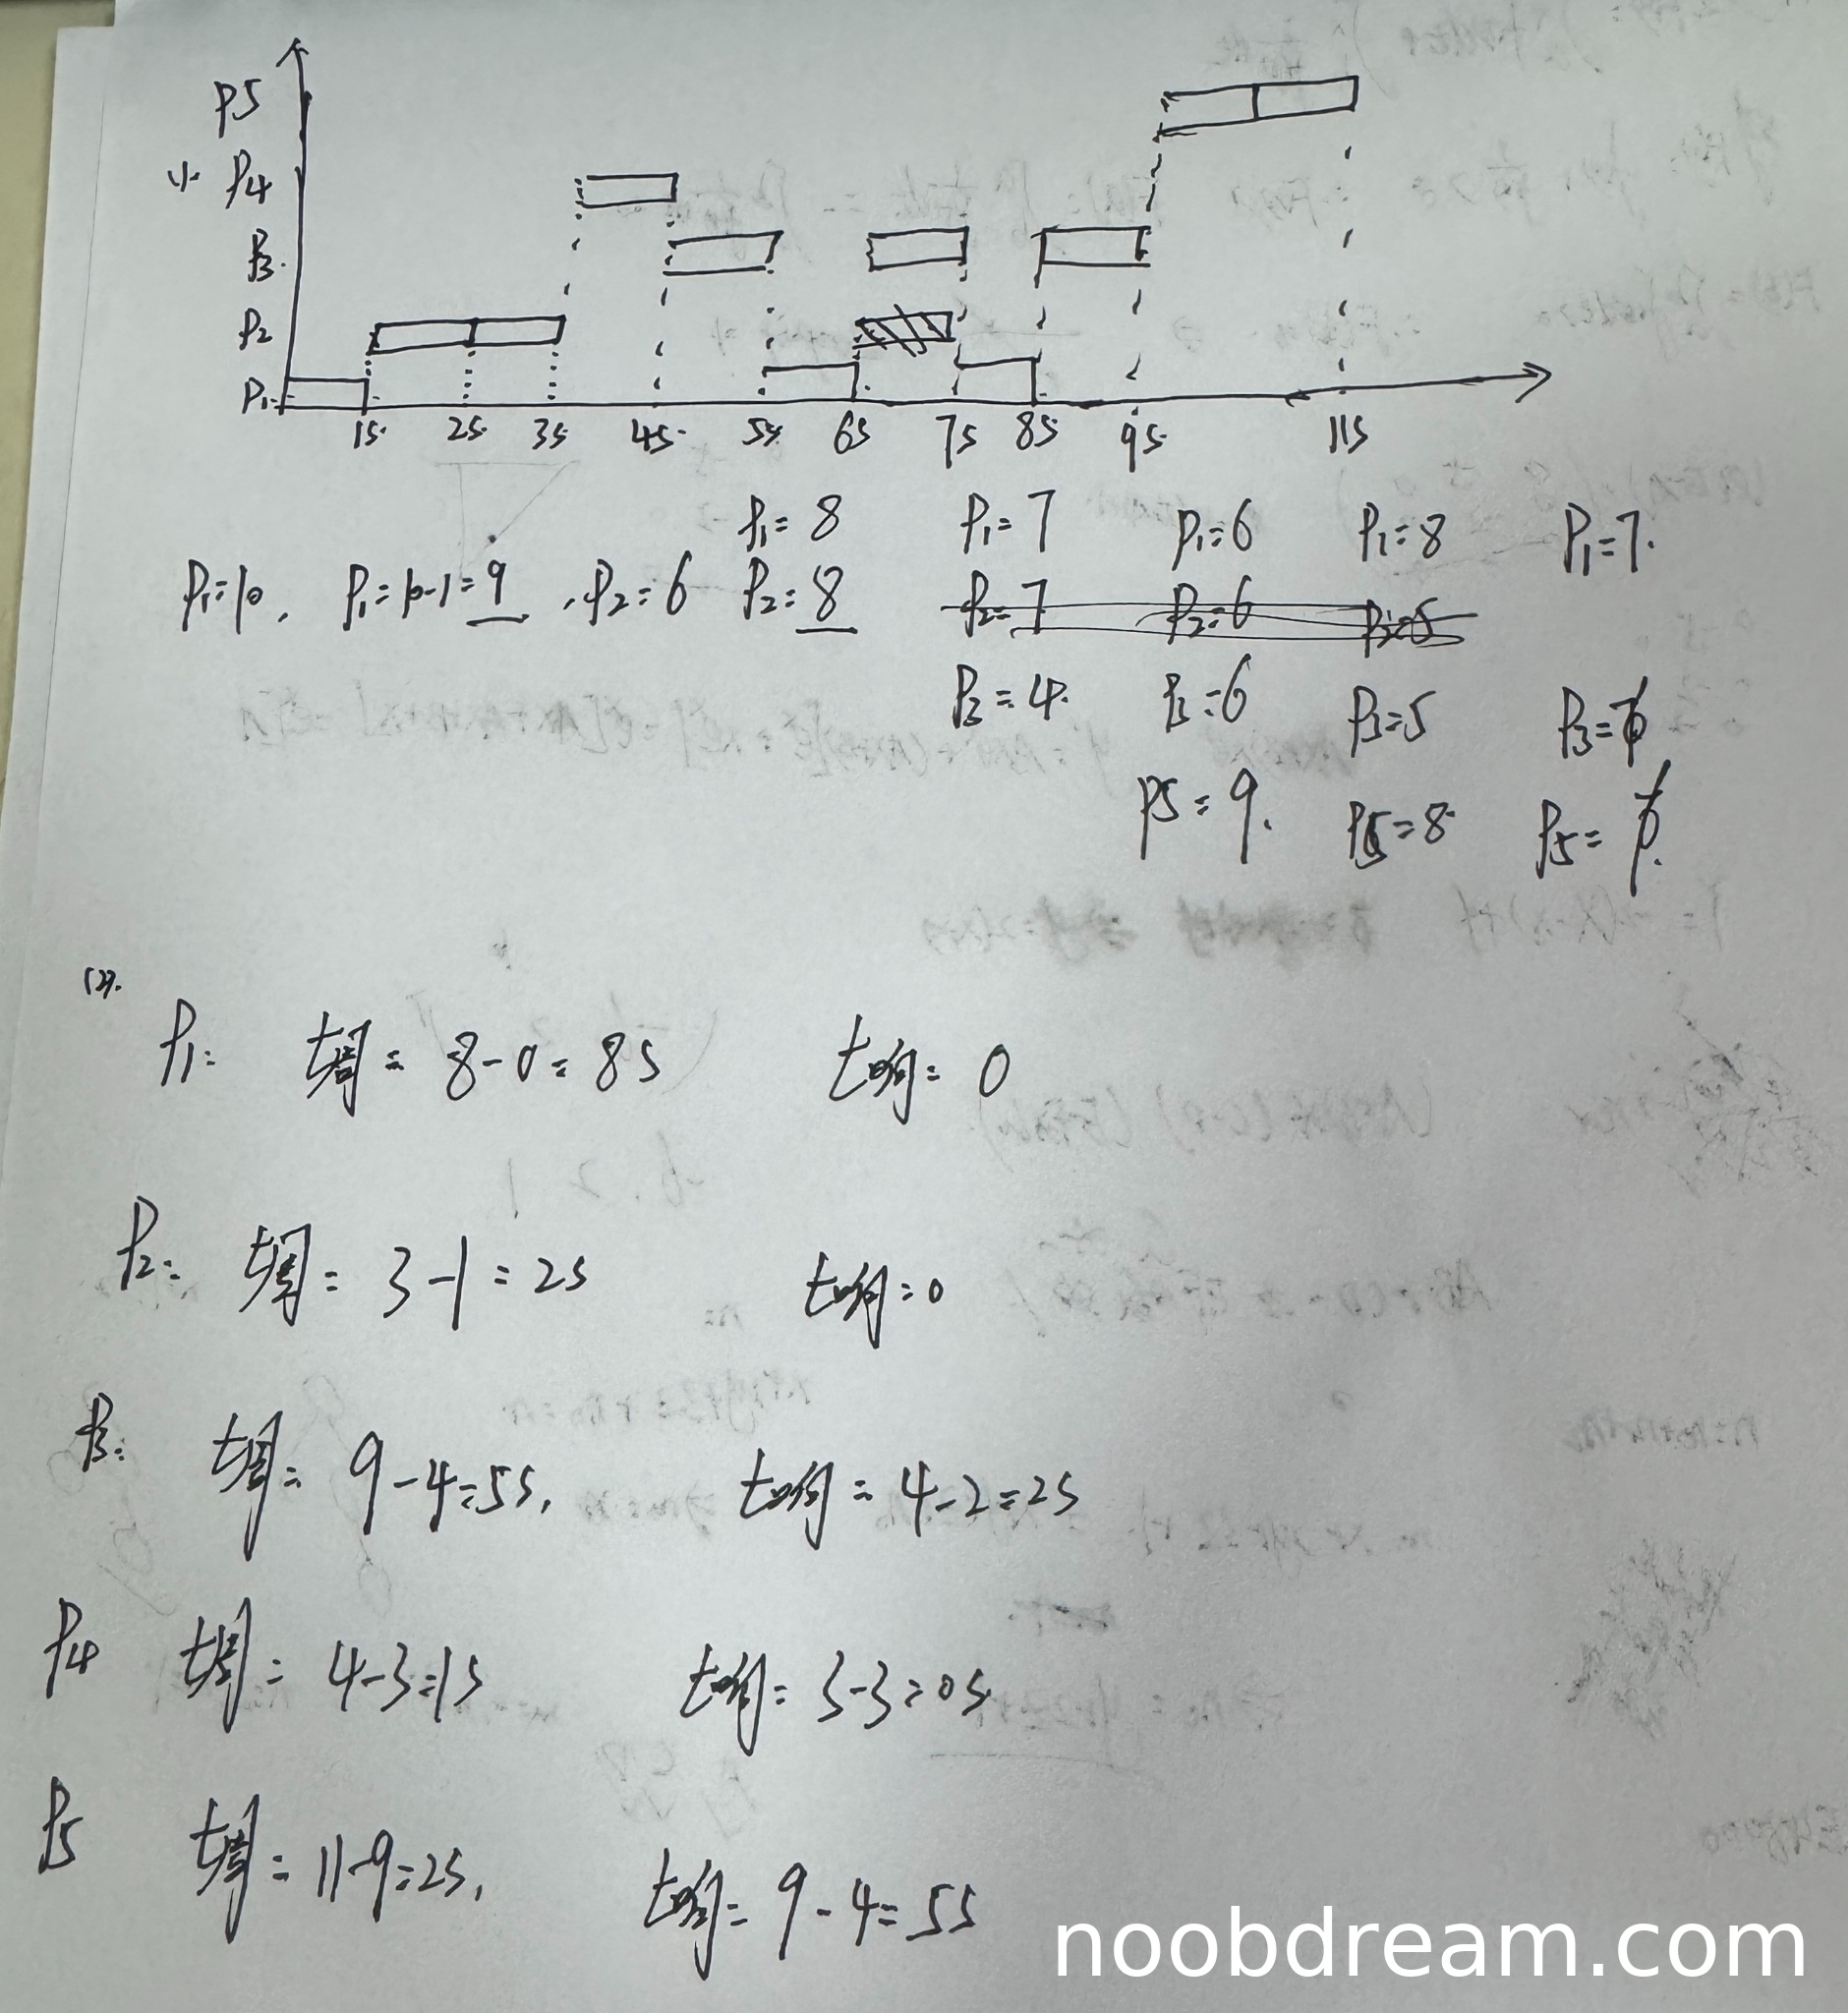 P5
小 P4
P3
P2
P1
1s 2s 3s 4s 5s 6s 7s 8s 9s 11s
P1=8 P1=7 P1=6 P1=8 P1=7
P1=10, P1=10-1=9, P2=6 P2=8 P2=7 P2=6
P3=4 P3=6 P3=5 P3=
P5=9 P5=8 P5=
(2).
P1: t周=8-0=8s t响=0
P2: t周=3-1=2s t响=0
P3: t周=9-4=5s, t响=4-2=2s
P4 t周=4-3=1s t响=3-3=0s
P5 t周=11-9=2s, t响=9-4=5s
noobdream.com